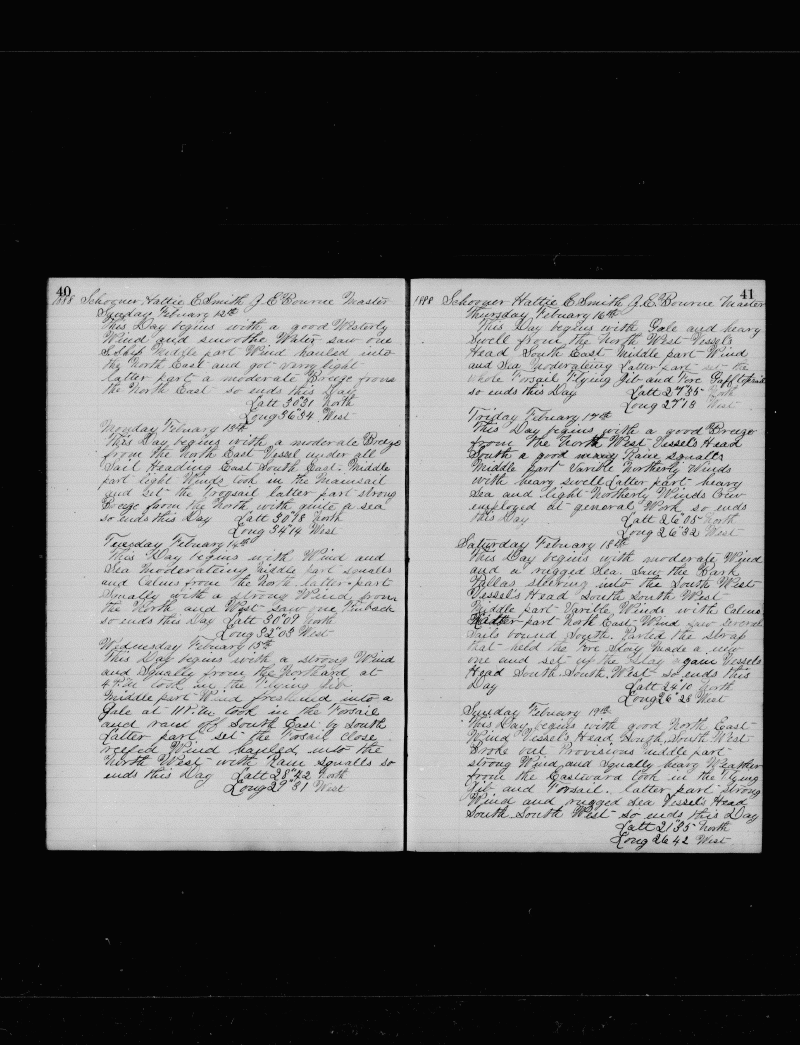 40
1888 Schooner Hattie E Smith J. E. Bourne Master
Sunday Febuary 12th
This Day begins with a good Westerly
Wind and smoothe Water saw one
S. Ship Middle part Wind hauled into
the North East and got very light
latter part a moderate Breeze from
the North East so ends this Day
Latt 30°31 North
Long 36°34 West
Monday Febuary 13th
This Day begins with a moderate Breeze
from the North East Vessel under all
Sail Heading East South East. Middle
part light Winds took in the Mainsail
and set the Trogsail latter part strong
Breeze from the North with quite a sea
so ends this Day Latt 30°18 North
Long 34°14 West
Tuesday Febuary 14th
This Day begins with Wind and
Sea moderateing middle part squalls
and Calms from the North latter part
Squally with a strong Wind from
the North and West saw one Finback
so ends this Day Latt 30°09 North
Long 32°03 West
Wednesday Febuary 15th
This Day begins with a strong Wind
and Squally from the Northard at
4 P.M. took in the Flying Jib
middle part Wind freshened into a
Gale at 11 P.M. took in the Forsail
and rand off South East by South
Latter part set the Forsail close
reefed Wind hauled into the
North West with Rain Squalls so
ends this Day Latt 28°42 North
Long 29°31 West
41
1888 Schooner Hattie E Smith J. E. Bourne Master
Thursday Febuary 16th
This Day begins with Gale and heavy
Swell from the North West Vessel's
Head South East Middle part Wind
and Sea moderateing Latter part set the
whole Forsail Flying Jib and Fore Gafftopsail
so ends this Day Latt 27°35 North
Long 27°18 West
Friday Febuary 17th
This Day begins with a good Breeze
from the North West Vessels Head
South a good many Rain squalls
Middle part Varible Northerly Winds
with heavy swell Latter part heavy
Sea and light Northerly Winds Crew
employed at general Work so ends
this Day Latt 26°05 North
Long 26°32 West
Saturday Febuary 18th
This Day begins with moderate Wind
and a rugged Sea. Saw the Bark
Pallas steering into the South West
Vessel's Head South South West
Middle part Varible Winds with Calms
Latter part North East Wind saw several
Sails bound South. Parted the strap
that held the Fore Stay made a new
one and set up the Stay again Vessels
Head South South West so ends this
Day Latt 24°10 North
Long 26°28 West
Sunday Febuary 19th
This Day begins with good North East
Wind Vessel's Head South South West
Broke out Provisions middle part
strong Wind and Squally heavy Weather
from the Eastward took in the Flying
Jib and Forsail. latter part strong
Wind and rugged Sea Vessels Head
South South West so ends this Day
Latt 21°35 North
Long 26 42 West